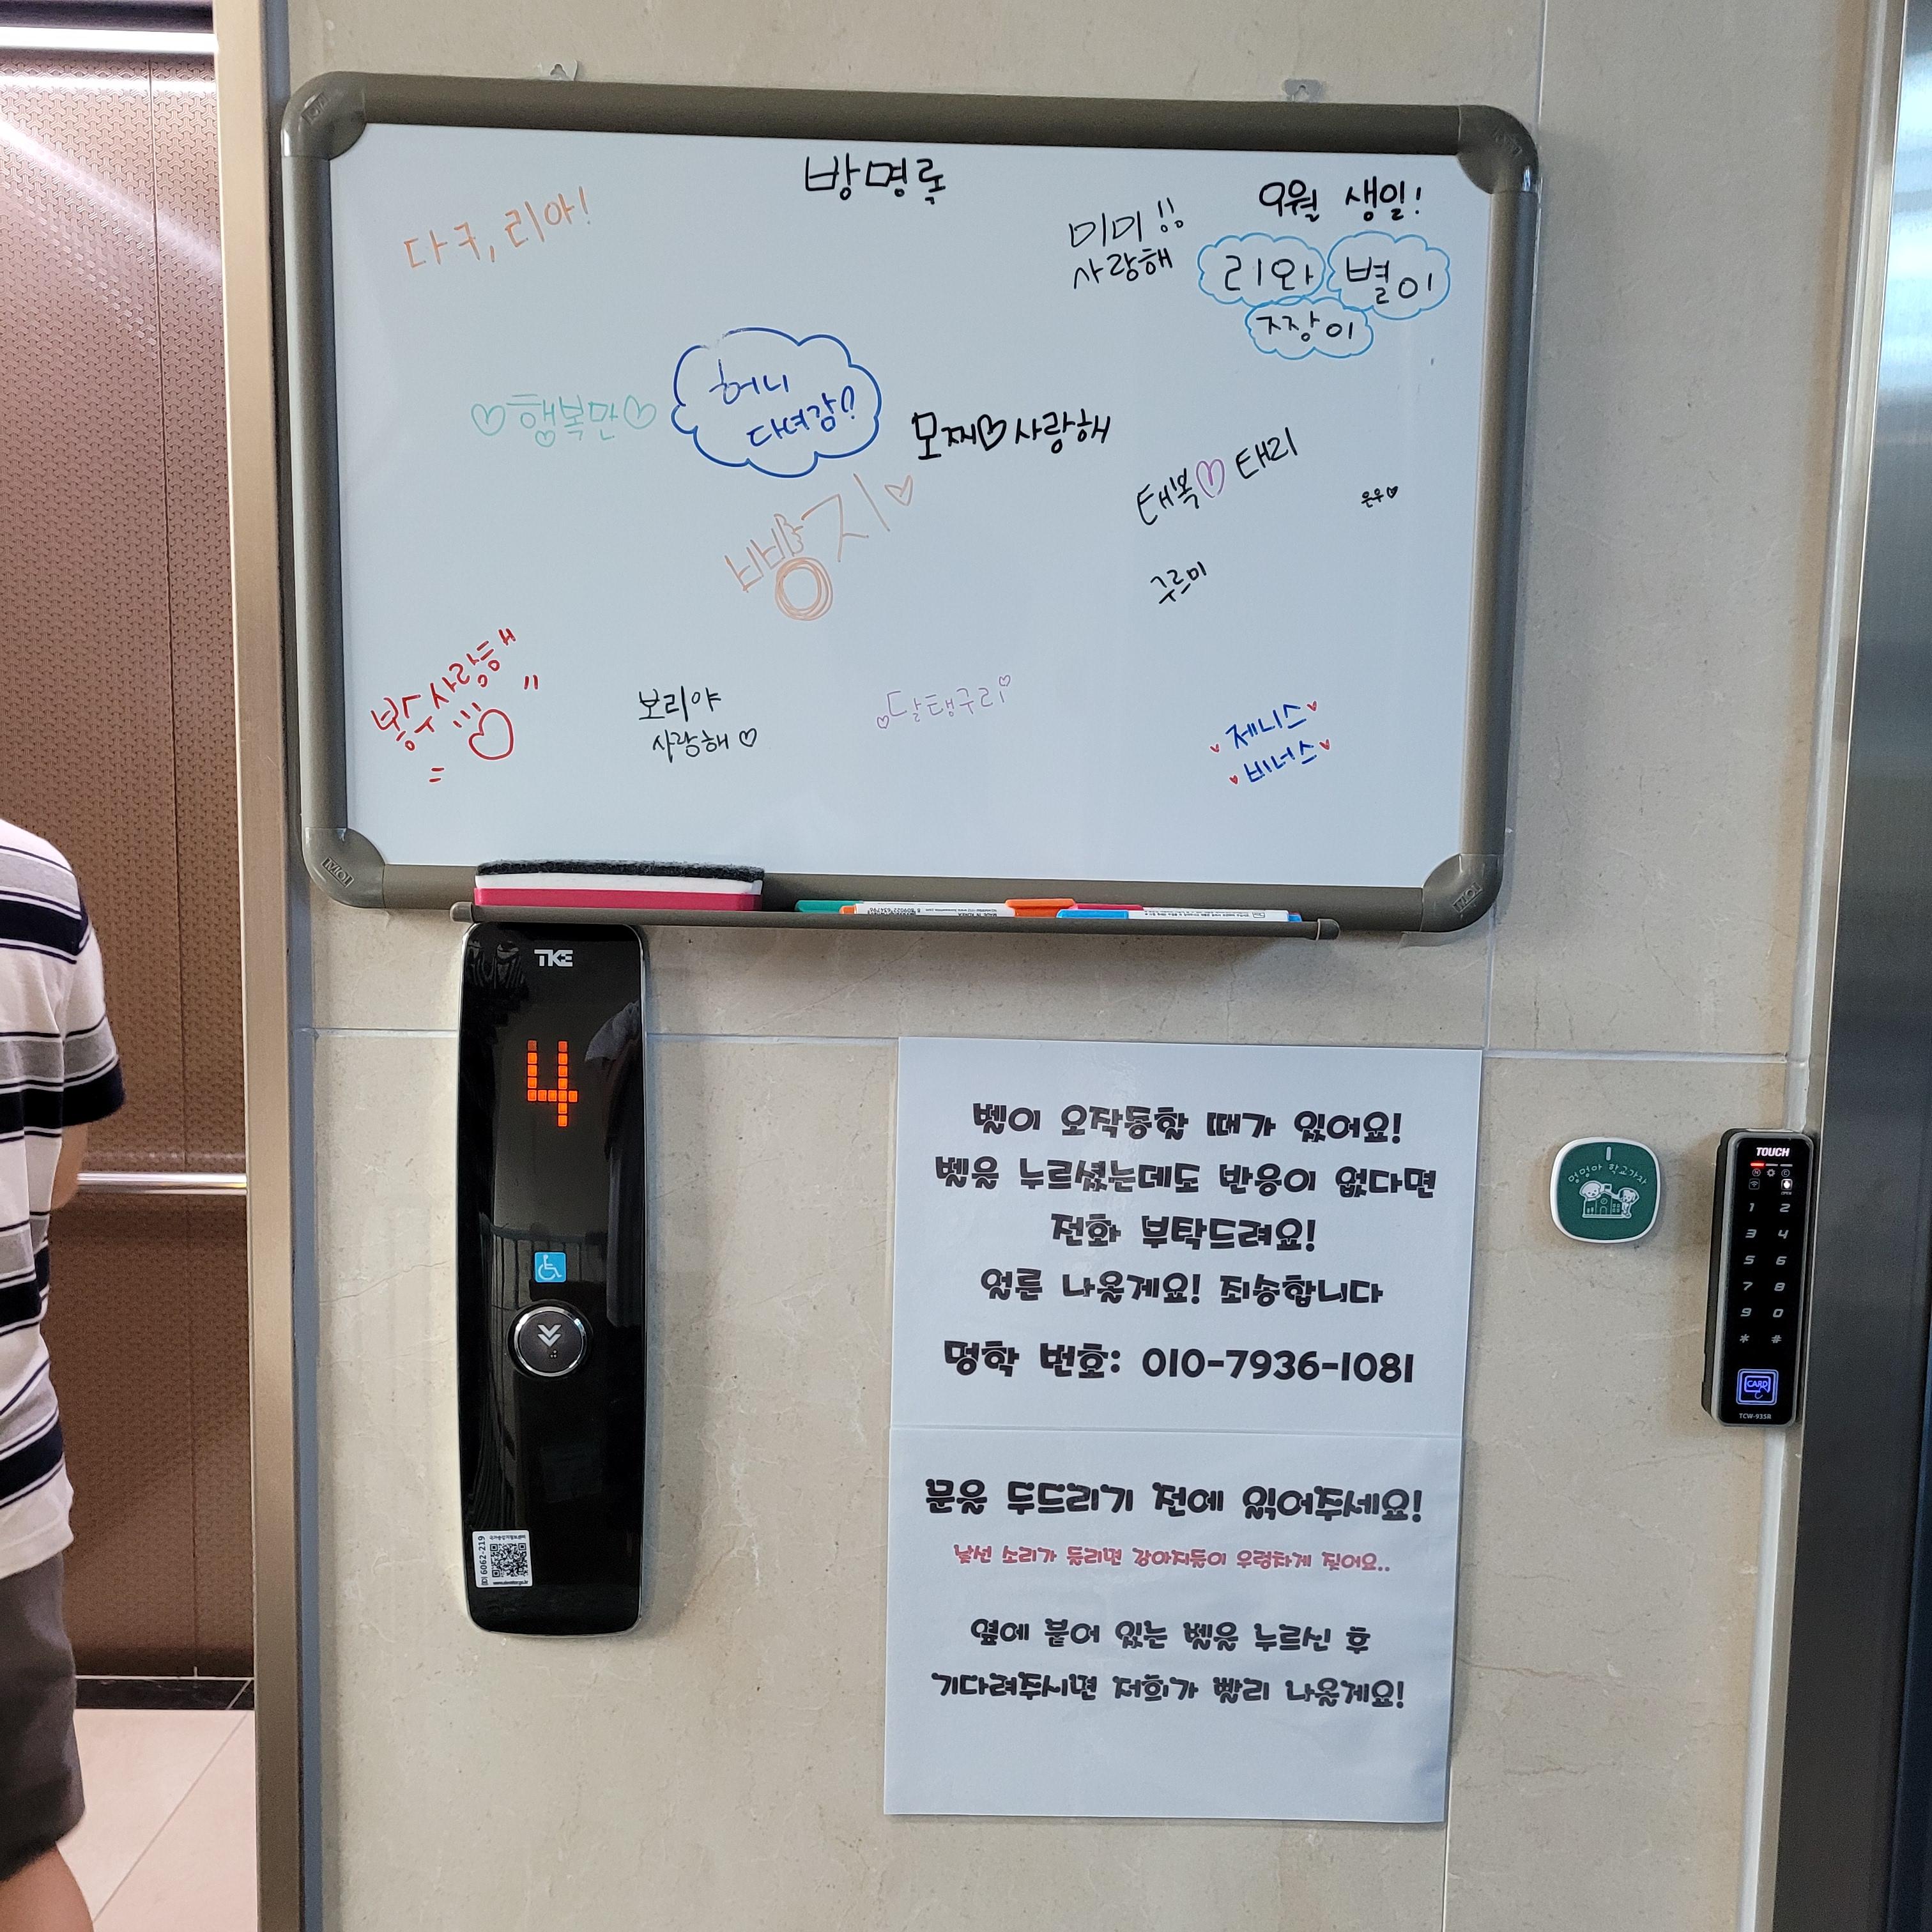 방명록
다구, 리아!
미미!!
사랑해
9월 생일!
리와 별이
짜장이
♡행복만♡
허니
다녀감?
모찌♡사랑해
빵지♡
태복♡태리
은우♡
구르미
봉수 사랑해
보리야
사랑해 ♡
♡달탱구리♡
♥제니스♥
♥비너스♥
TKE
4
6062-219
벨이 오작동할 때가 있어요!
벨을 누르셨는데도 반응이 없다면
전화 부탁드려요!
얼른 나올게요! 죄송합니다
멍학 번호: 010-7936-1081
문을 두드리기 전에 읽어주세요!
낯선 소리가 들리면 강아지들이 우렁차게 짖어요..
옆에 붙어 있는 벨을 누르신 후
기다려주시면 저희가 빨리 나올게요!
멍멍아 학교가자
TOUCH
1 2
3 4
5 6
7 8
9 0
* #
CARD
TCW-935R